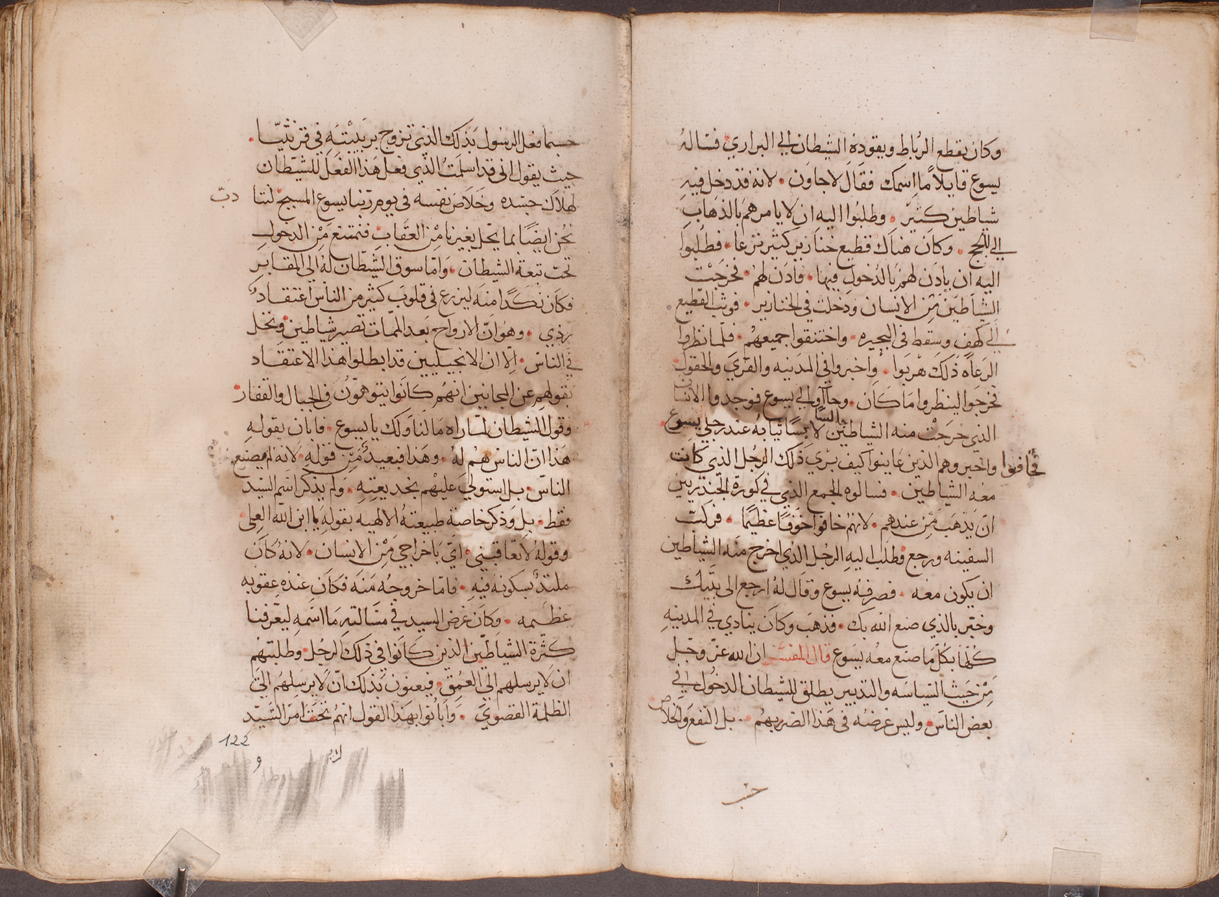 وكان يقطع الرباط ويقوده الشيطان الي البراري فساله
يسوع قايلاً ما اسمك فقال لاجاون لانه قد دخل فيه
شياطين كثير وطلبوا اليه ان لا يامرهم بالذهاب
الي اللجج وكان هناك قطيع خنازير كثير ترعا فطلبوا
اليه ان ياذن لهم بالدخول فيها فاذن لهم فخرجت
الشياطين من الانسان ودخلت في الخنازير فوثب القطيع
الي كهف وسقط في البحيره واختنقوا جميعهم فلما نظروا
الرعاه ذلك هربوا واخبروا في المدينه والقري والحقول
فخرجوا لينظروا ما كان وجاآوا الي يسوع فوجدوا الانسان
الذي خرجت منه الشياطين جالساً لابساً ثيابه عند رجلي يسوع
فخافوا واخبروهم الذين عاينوا كيف بري ذلك الرجل الذي كانت
معه الشياطين فسالوه الجمع الذي في كورة الجدريين
ان يذهب من عندهم لانهم خافوا خوفاً عظيماً فركب
السفينه ورجع فطلب اليه الرجل الذي اخرج منه الشياطين
ان يكون معه فصرفه يسوع وقال له ارجع الي بيتك
وخبر بالذي صنع الله بك فذهب وكان ينادي في المدينه
كلها بكل ما صنع معه يسوع قال المفسر ان الله عز وجل
من حيث السياسه والتدبير يطلق للشيطان الدخول في
بعض الناس وليس غرضه في هذا الضر بهم بل النفع والخلاص
حسب
حسبما فعل الرسول بذلك الذي تزوج بربيبته في قرنثيا
حيث يقول اني قد اسلمت الذي فعل هذا الفعل للشيطان
لهلاك جسده وخلاص نفسه في يوم ربنا يسوع المسيح لتا
دبّ
نحن ايضاً بما يحل بغيرنا من العقاب فنمتنع من الدخول
تحت تبعة الشيطان واما سوق الشيطان له الي المقابر
فكان نكداً منه ليزرع في قلوب كثير من الناس اعتقاد
ردي وهو ان الارواح بعد الممات تصير شياطين وتحل
في الناس الا ان الانجيليين قد ابطلوا هذا الاعتقاد
بقولهم عن المجانين انهم كانوا يتوهمون في الجبال والقفار
وقول الشيطان لما راه مالنا ولك يا يسوع فابان بقوله
هذا ان الناس هم له وهذا فبعيد من قوله لانه لم يصنع
الناس بل استولي عليهم بخديعته ولم يذكر اسم السيد
فقط بل وذكر خاصه طبيعته الالهيه بقوله يا ابن الله العلي
وقوله لا تعاقبني اي باخراجي من الانسان لانه كان
ملتذ بسكونه فيه فاما خروجه منه فكان عنده عقوبه
عظيمه وكان غرض السيد في مسالته ما اسمه ليعرفنا
كثرة الشياطين الذين كانوا في ذلك الرجل وطلبتهم
ان لا يرسلهم الي العمق فيعنون بذلك ان لا يرسلهم الي
الظلمة القصوي وابانوا بهذا القول انهم تحت امر السيد
122